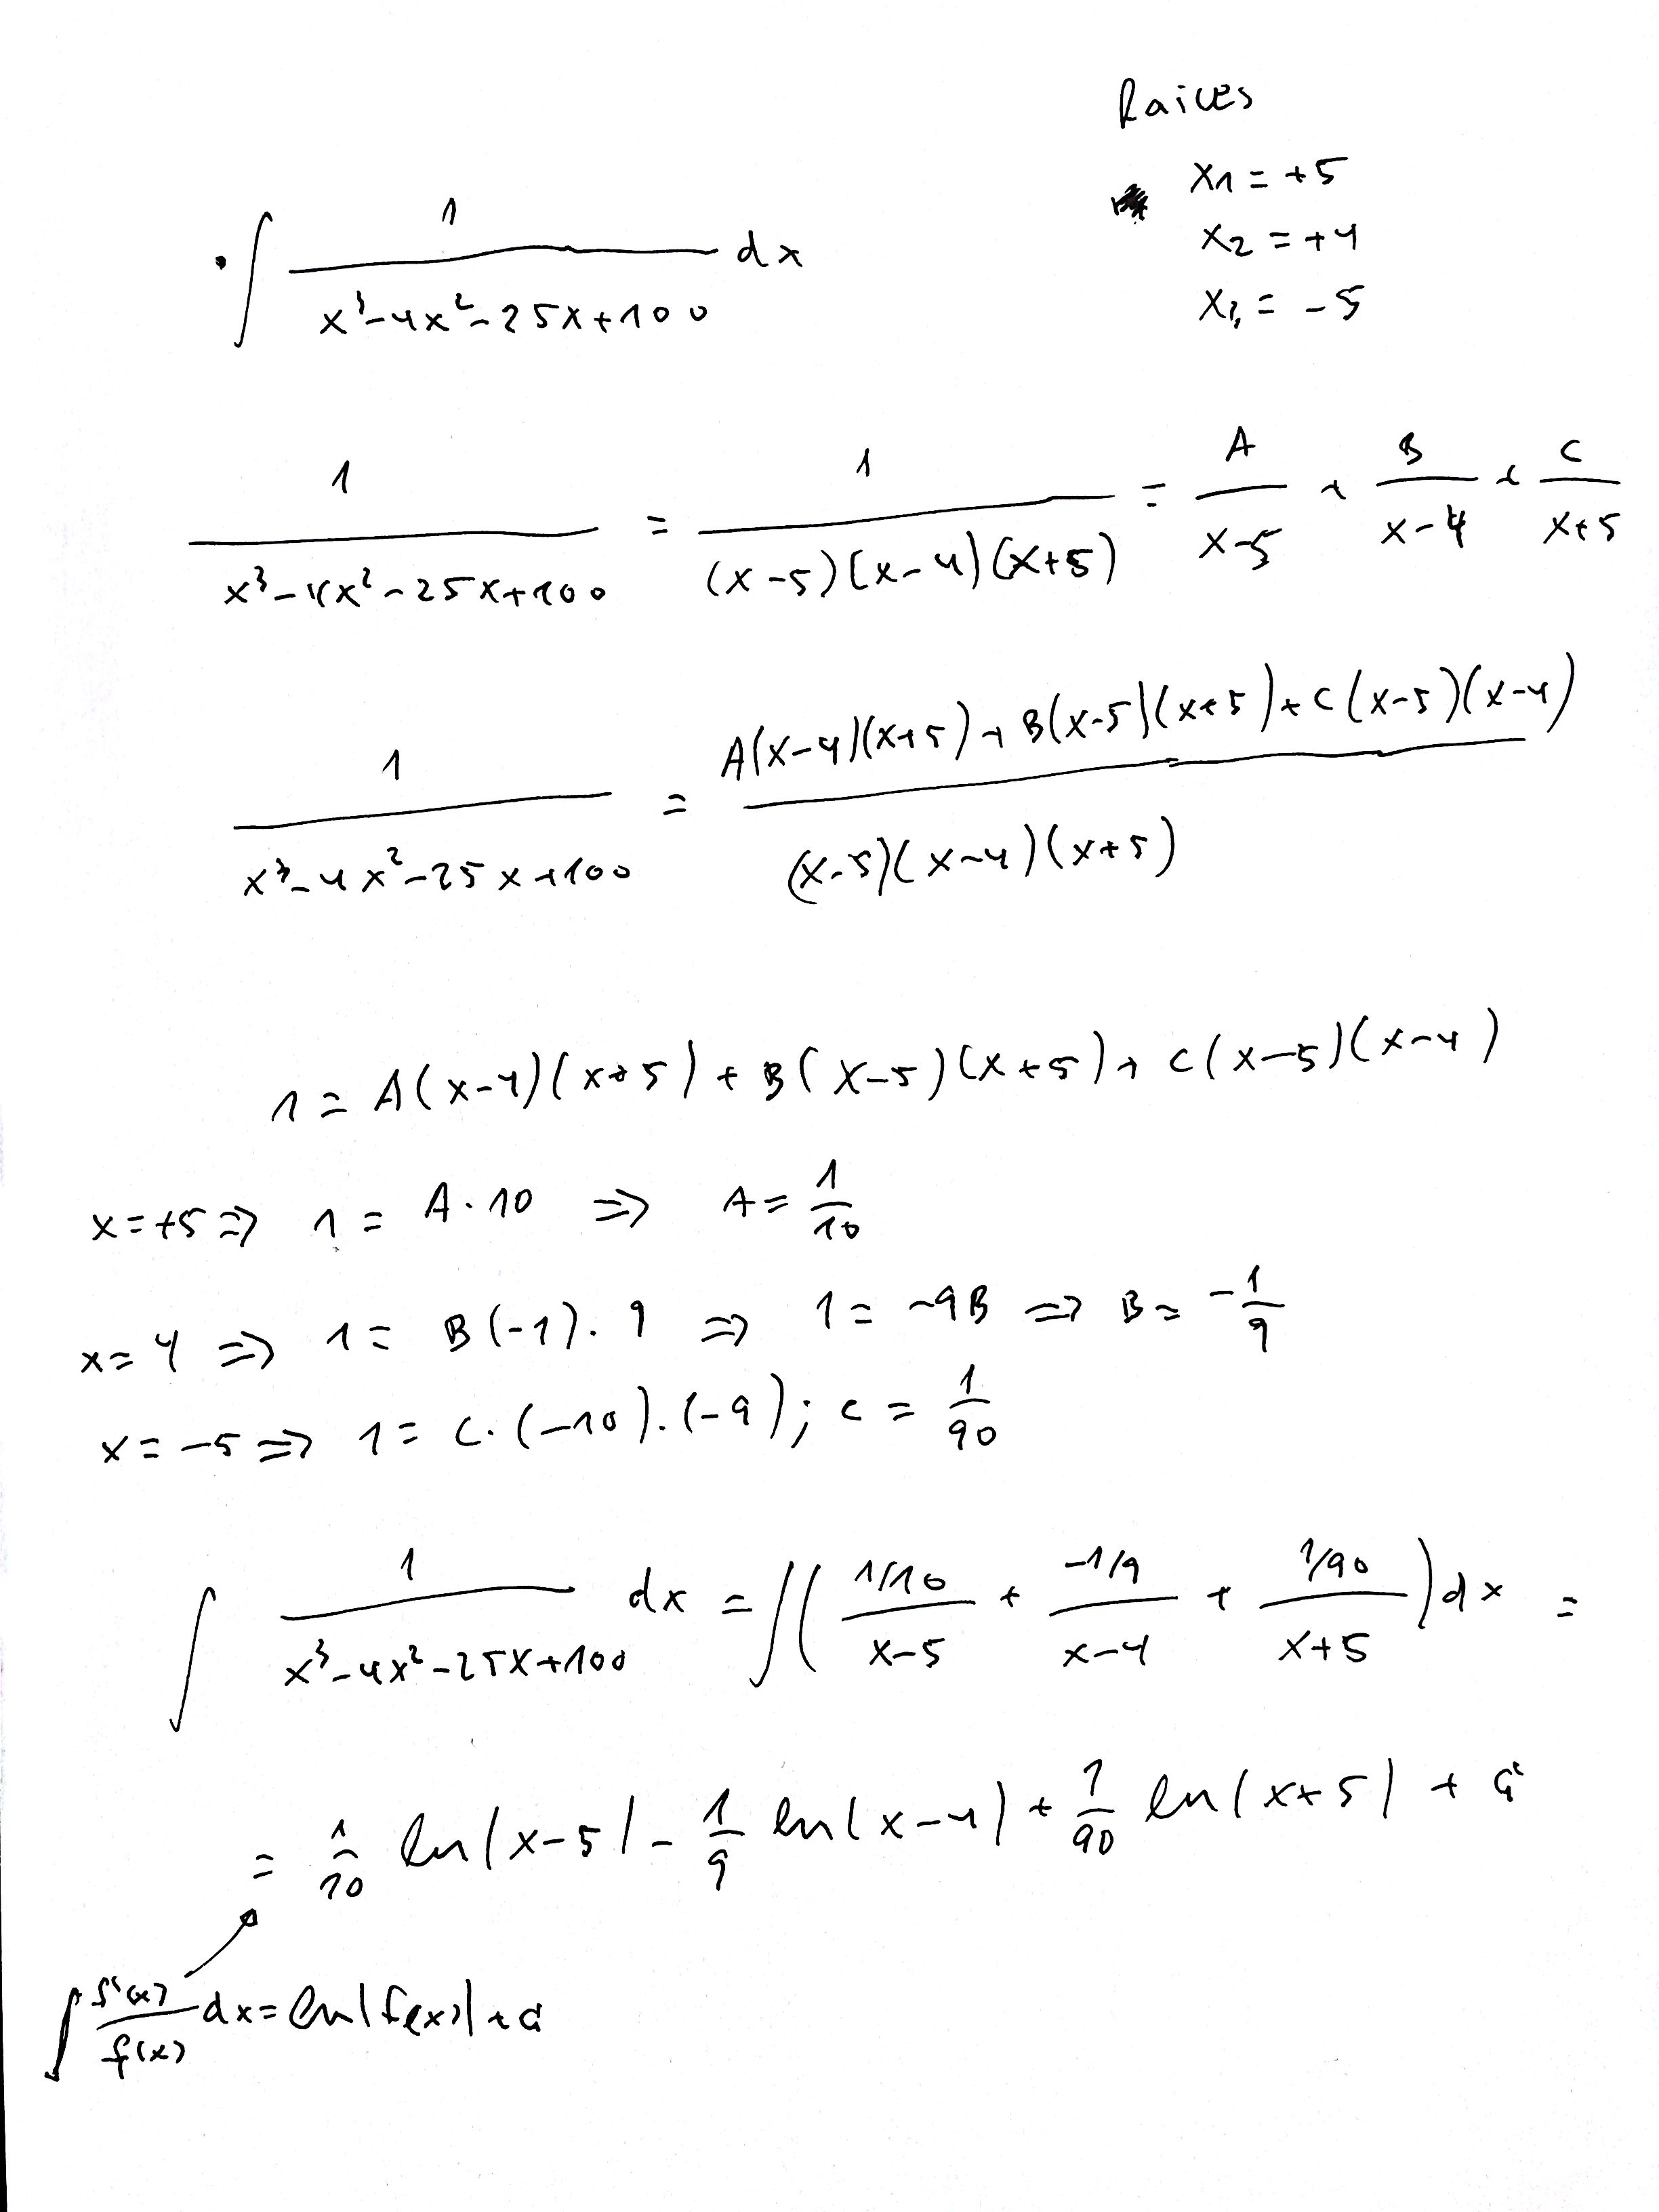 Raices
x₁ = +5
x₂ = +4
x₃ = -5
· ∫ 1/(x³-4x²-25x+100) dx
1/(x³-4x²-25x+100) = 1/((x-5)(x-4)(x+5)) = A/(x-5) + B/(x-4) + C/(x+5)
1/(x³-4x²-25x+100) = (A(x-4)(x+5)+B(x-5)(x+5)+C(x-5)(x-4))/((x-5)(x-4)(x+5))
1 = A(x-4)(x+5) + B(x-5)(x+5) + C(x-5)(x-4)
x=+5 => 1 = A·10 => A = 1/10
x=4 => 1 = B(-1)·9 => 1 = -9B => B = -1/9
x=-5 => 1 = C·(-10)·(-9); C = 1/90
∫ 1/(x³-4x²-25x+100) dx = ∫((1/10)/(x-5) + (-1/9)/(x-4) + (1/90)/(x+5)) dx =
= 1/10 ln|x-5| - 1/9 ln|x-4| + 1/90 ln|x+5| +
∫ f'(x)/f(x) dx = ln|f(x)| +